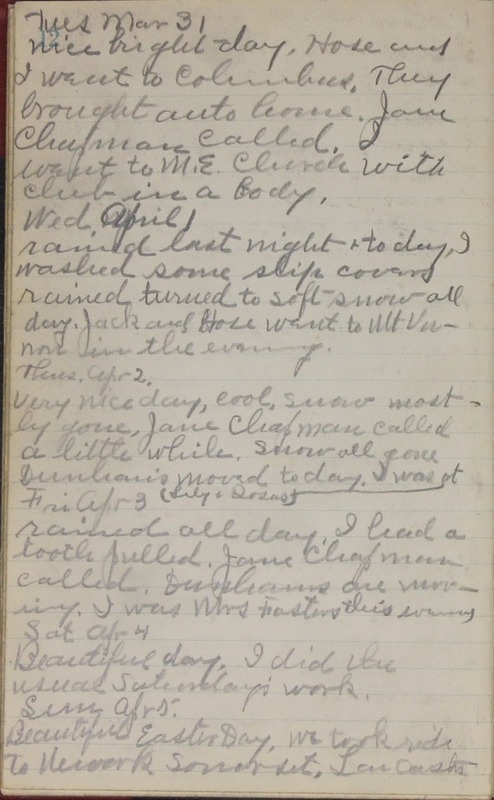 Tues Mar 31
nice bright day, Hose and
I went to Columbus. They
brought auto home. Jane
Chapman called. I
went to M.E. Church with
club in a body.
Wed, April 1
rained last night + to day, I
washed some slip covers
rained turned to soft snow all
day. Jack and Hose went to Mt Ver-
non in the evening.
Thus, Apr 2.
Very nice day, cool, snow most-
ly gone, Jane Chapman called
a little while. Snow all gone
Dunham's moved to day, I was at
Fri Apr 3 (Lily + Rosas)
rained all day, I had a
tooth pulled. Jane Chapman
called. Dunhams are mov-
ing. I was Mrs Fosters this evening
Sat Apr 4
Beautiful day. I did the
usual Saturday's work.
Sun, Apr 5.
Beautiful Easter Day, we took ride
to Newark Somerset, Lancaster